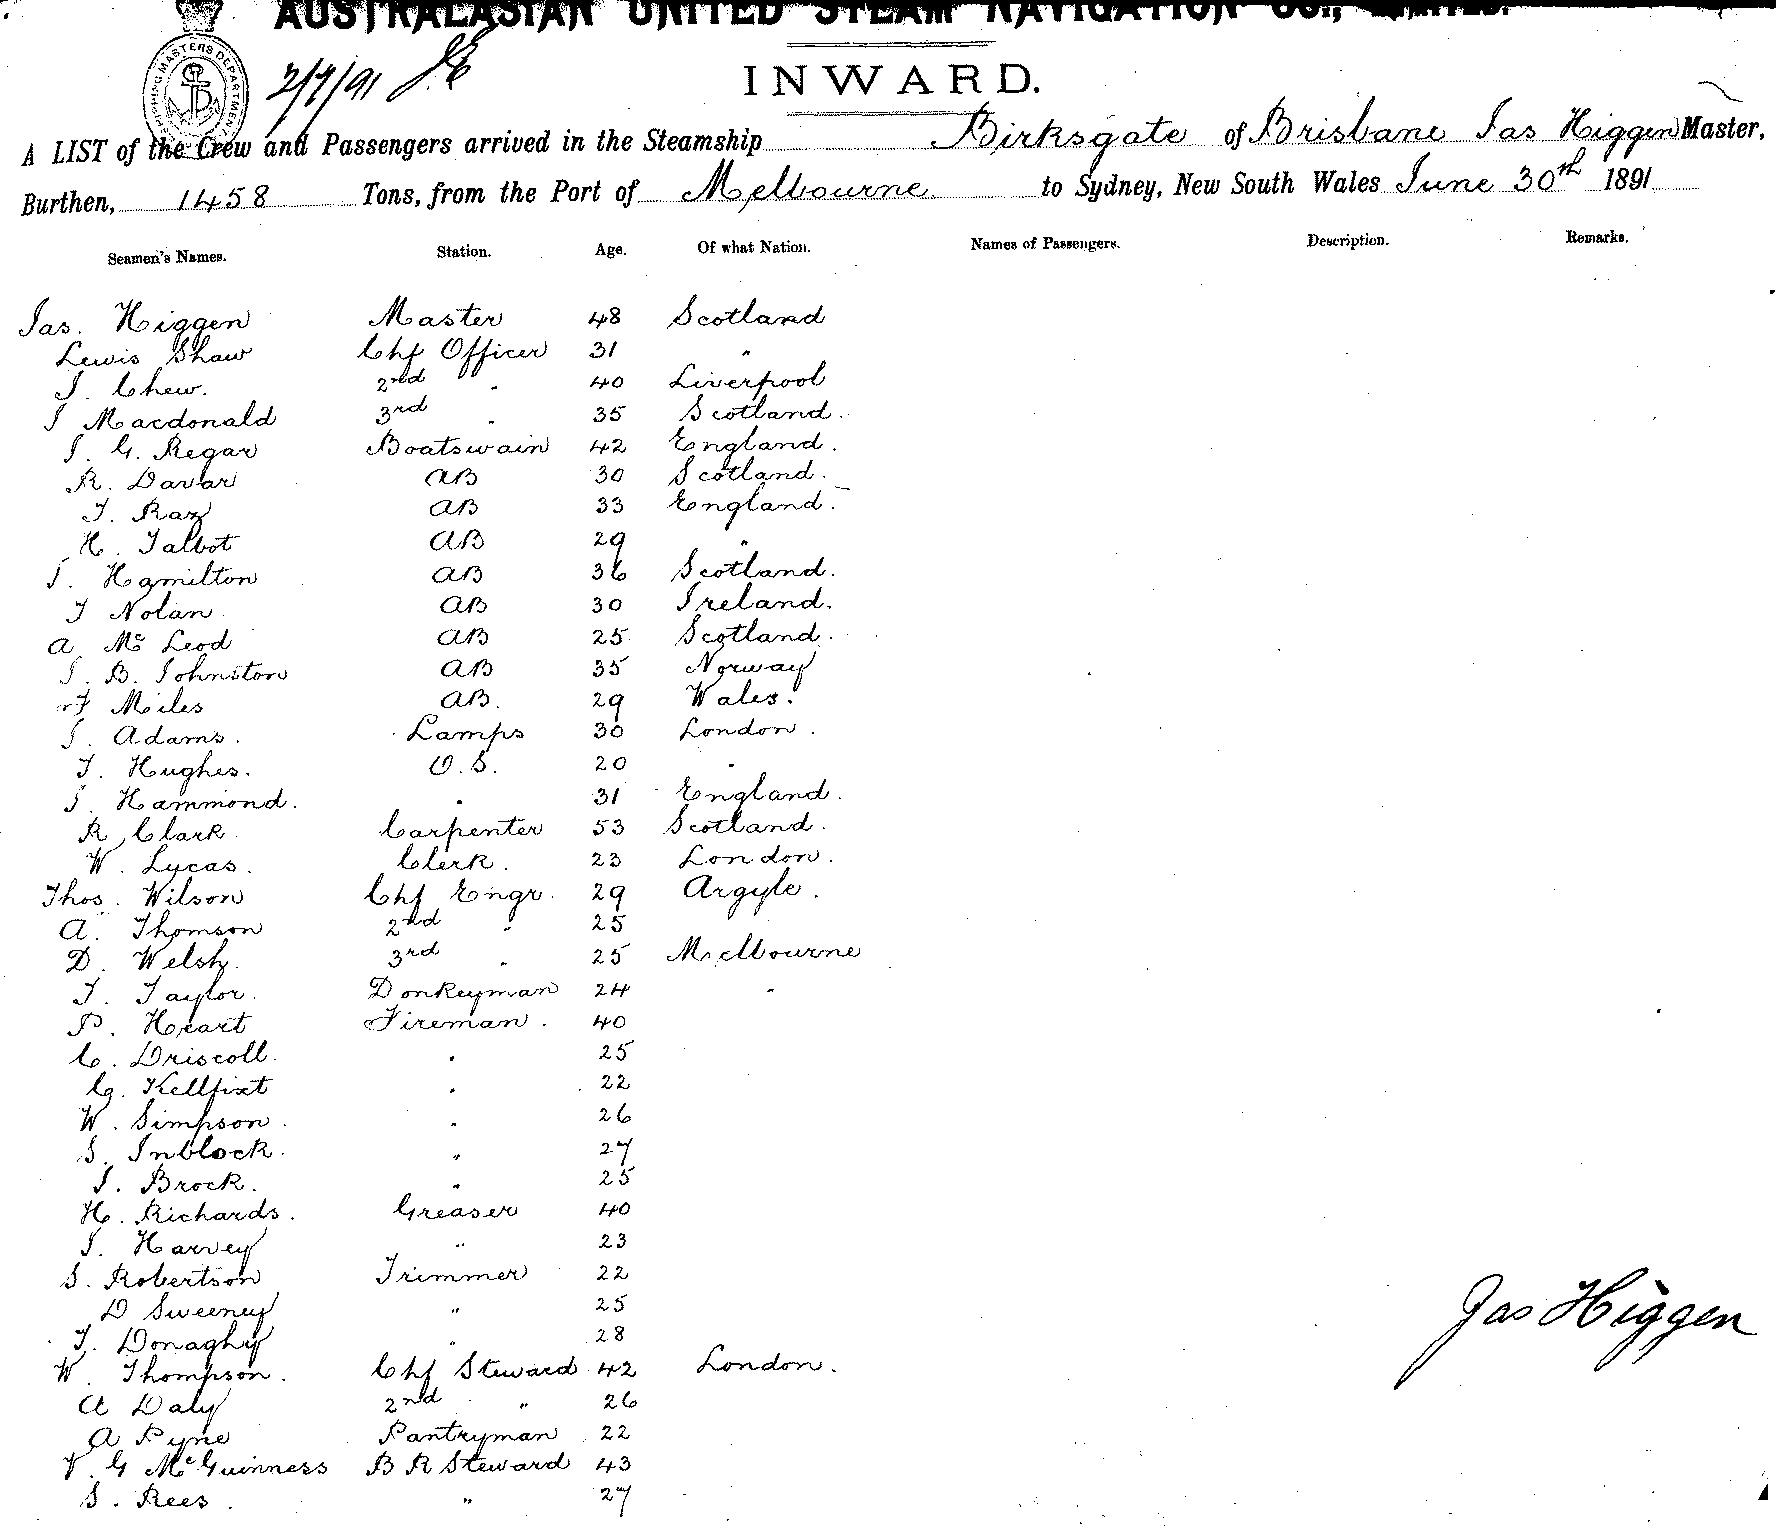 AUSTRALASIAN UNITED STEAM NAVIGATION CO., LIMITED.
2/7/91
INWARD.
A LIST of the Crew and Passengers arrived in the Steamship Birksgate of Brisbane Jas Higgen Master,
Burthen, 1458 Tons, from the Port of Melbourne to Sydney, New South Wales June 30th 1891
Seamen's Names. Station. Age. Of what Nation. Names of Passengers. Description. Remarks.
Jas. Higgen Master 48 Scotland
Lewis Shaw Chf Officer 31 "
J. Chew. 2nd " 40 Liverpool
J Macdonald 3rd " 35 Scotland.
J. G. Regar Boatswain 42 England.
R. Davar AB 30 Scotland.
T. Raz AB 33 England.
H. Talbot AB 29 "
J. Hamilton AB 36 Scotland.
T Nolan AB 30 Ireland.
A McLeod AB 25 Scotland.
J. B. Johnston AB 35 Norway
Miles AB. 29 Wales.
J. Adams. Lamps 30 London.
T. Hughes. O.S. 20 "
J. Hammond. " 31 England.
R Clark Carpenter 53 Scotland.
W. Lucas. Clerk. 23 London.
Thos. Wilson Chf Engr. 29 Argyle.
A. Thomson 2nd " 25
D. Welsh. 3rd " 25 Melbourne
T. Taylor. Donkeyman 24 "
P. Heart Fireman. 40
C. Driscoll. " 25
G. " 22
W. Simpson. " 26
S. Inblock. " 27
J. Brock. " 25
H. Richards. Greaser 40
J. Harvey " 23
S. Robertson Trimmer 22
D Sweeney " 25
T. Donaghy " 28
W. Thompson. Chf Steward 42 London.
A Daly 2nd " 26
A Pyne Pantryman 22
V. G McGuinness B R Steward 43
S. Rees. " 27
Jas Higgen